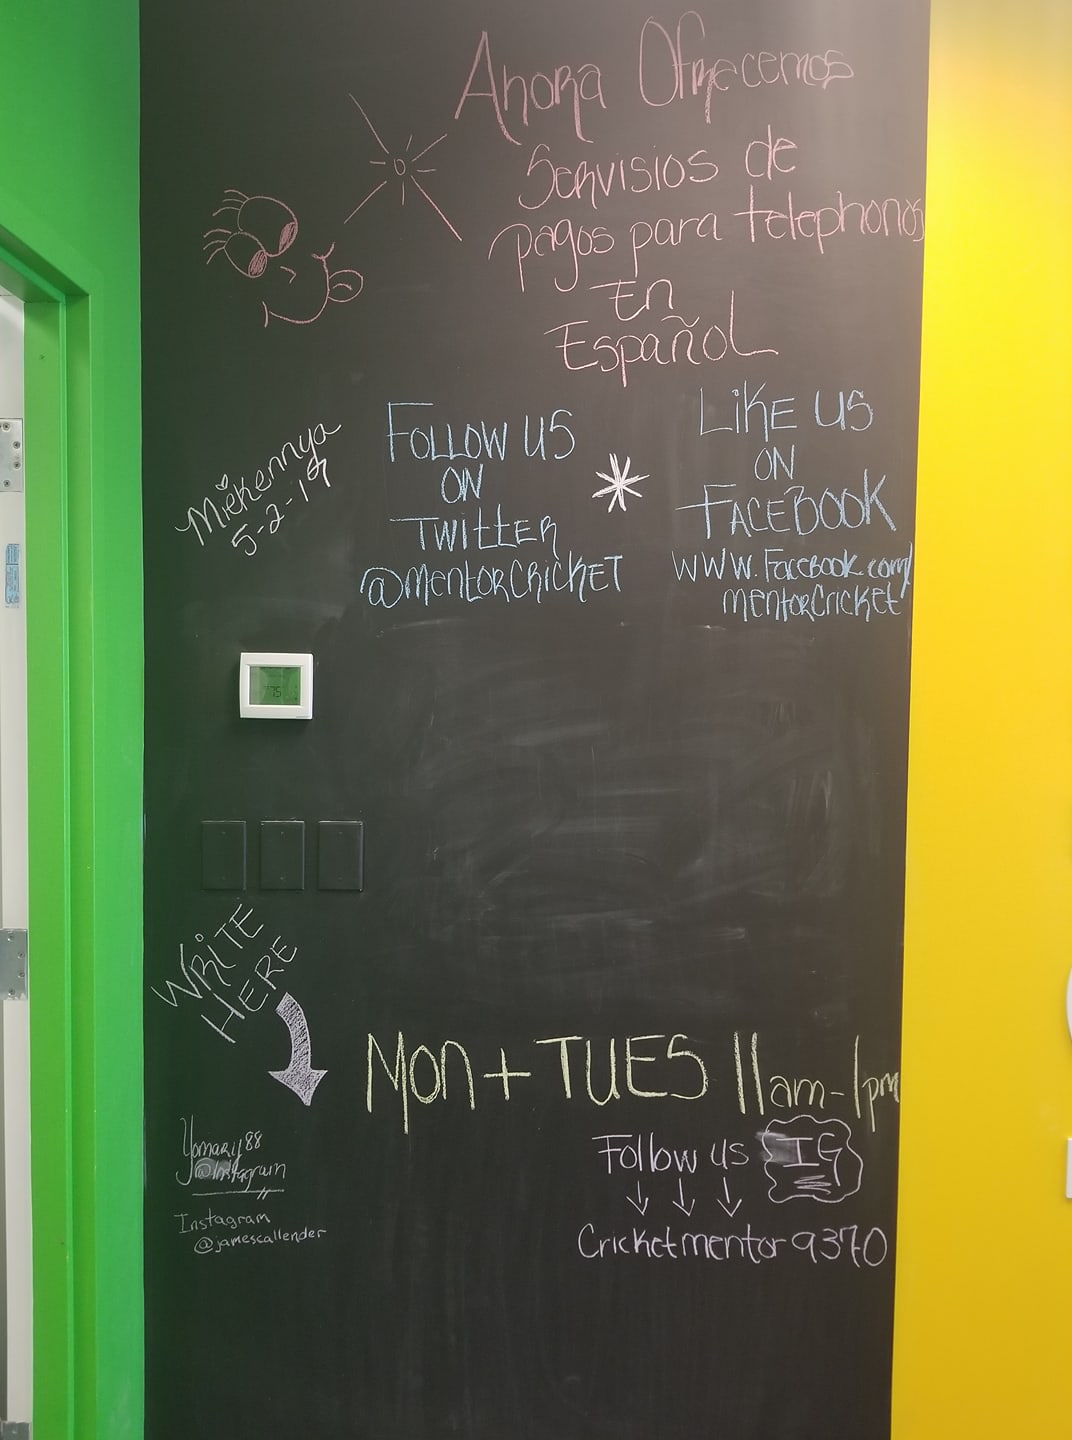 Ahora Ofrecemos
Servisios de
pagos para telephonos
En
Español
Miekennya
5-2-19
Follow us
on
Twitter
@mentorcricket
Like us
on
Facebook
www.Facebook.com/
mentorCricket
75
Write
Here
Mon + TUES 11am-1pm
Yomary88
@Instagram
Instagram
@jamescallender
Follow us IG
Cricketmentor9370